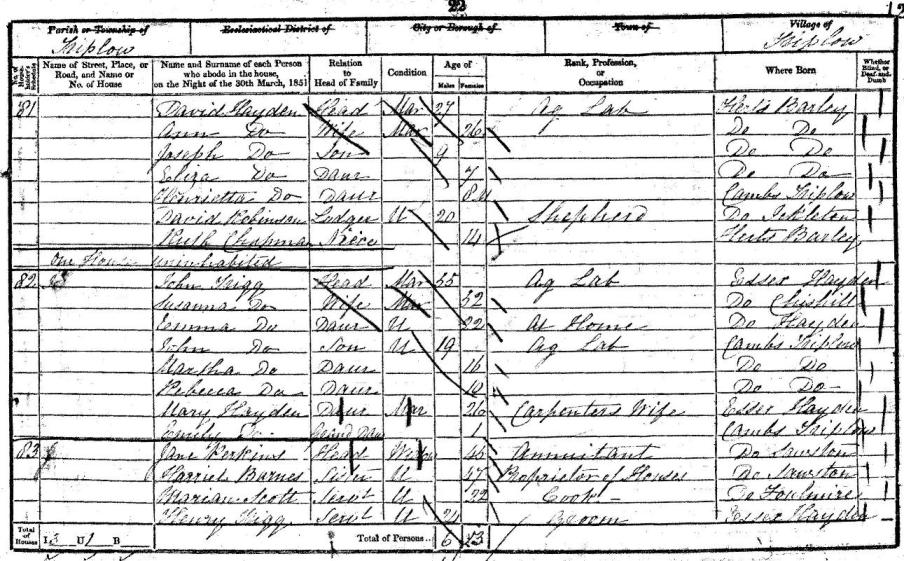 22
12
Parish or Township of Ecclesiastical District of City or Borough of Town of Village of
Triplow Triplow
No. of House-holder's Schedule Name of Street, Place, or Road, and Name or No. of House Name and Surname of each Person who abode in the house, on the Night of the 30th March, 1851 Relation to Head of Family Condition Age of Males Females Rank, Profession, or Occupation Where Born Whether Blind, or Deaf-and-Dumb
81 David Hayden Head Mar 27 Ag Lab Herts Barley
Ann Do Wife Mar 26 Do Do
Joseph Do Son 9 Do Do
Eliza Do Daur 7 Do Do
Henrietta Do Daur 8 M Cambs Triplow
David Robinson Lodger U 20 Shepherd Do Ickleton
Ruth Chapman Niece 14 Herts Barley
One House uninhabited
82 John Trigg Head Mar 55 Ag Lab Essex Hayden
Susanna Do Wife Mar 52 Do Chishill
Emma Do Daur U 22 At Home Do Hayden
John Do Son U 19 Ag Lab Cambs Triplow
Martha Do Daur 16 Do Do
Rebecca Do Daur Do Do
Mary Hayden Daur Mar 26 Carpenters Wife Essex Hayden
Emily Do Grand Daur 1 Cambs Triplow
83 Jane Perkins Head Widow 45 Annuitant Do Sawston
Harriet Barnes Sister U 47 Proprietor of Houses Do Sawston
Marian Scott Servt U 22 Cook Do Foulmire
Henry Trigg Servt U 21 Groom Essex Hayden
Total of Houses I 3 U 1 B Total of Persons 6 13